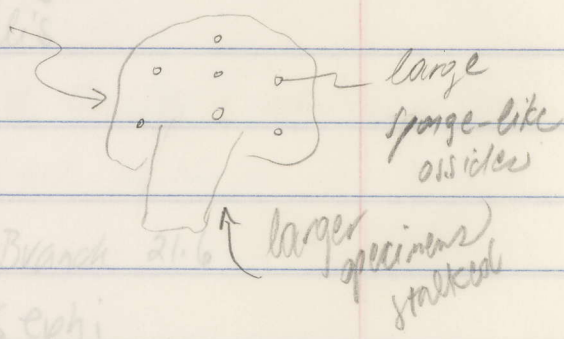 large
sponge-like
ossicles
larger
specimens
stalked
Branch 21.6